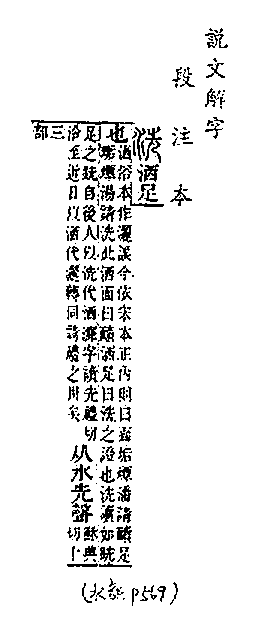 說文解字
段注本
洗洒足
也洒俗本作灑誤今依宋本正內則曰面垢燂潘請靧足
垢燂湯請洗此洒面曰靧洒足曰洗之證也洗讀如跣
足之跣自後人以洗代洒滌字讀先禮切
沿至近日以洒代灑轉同詩禮之用矣
从水先聲穌典切十
三部
(水部 p569)